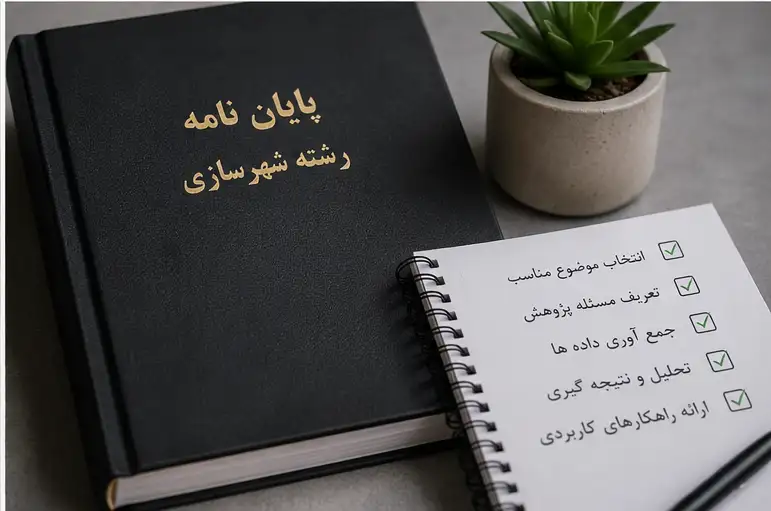 پایان نامه
رشته شهرسازی
انتخاب موضوع مناسب
تعریف مسئله پژوهش
جمع آوری داده ها
تحلیل و نتیجه گیری
ارائه راهکارهای کاربردی